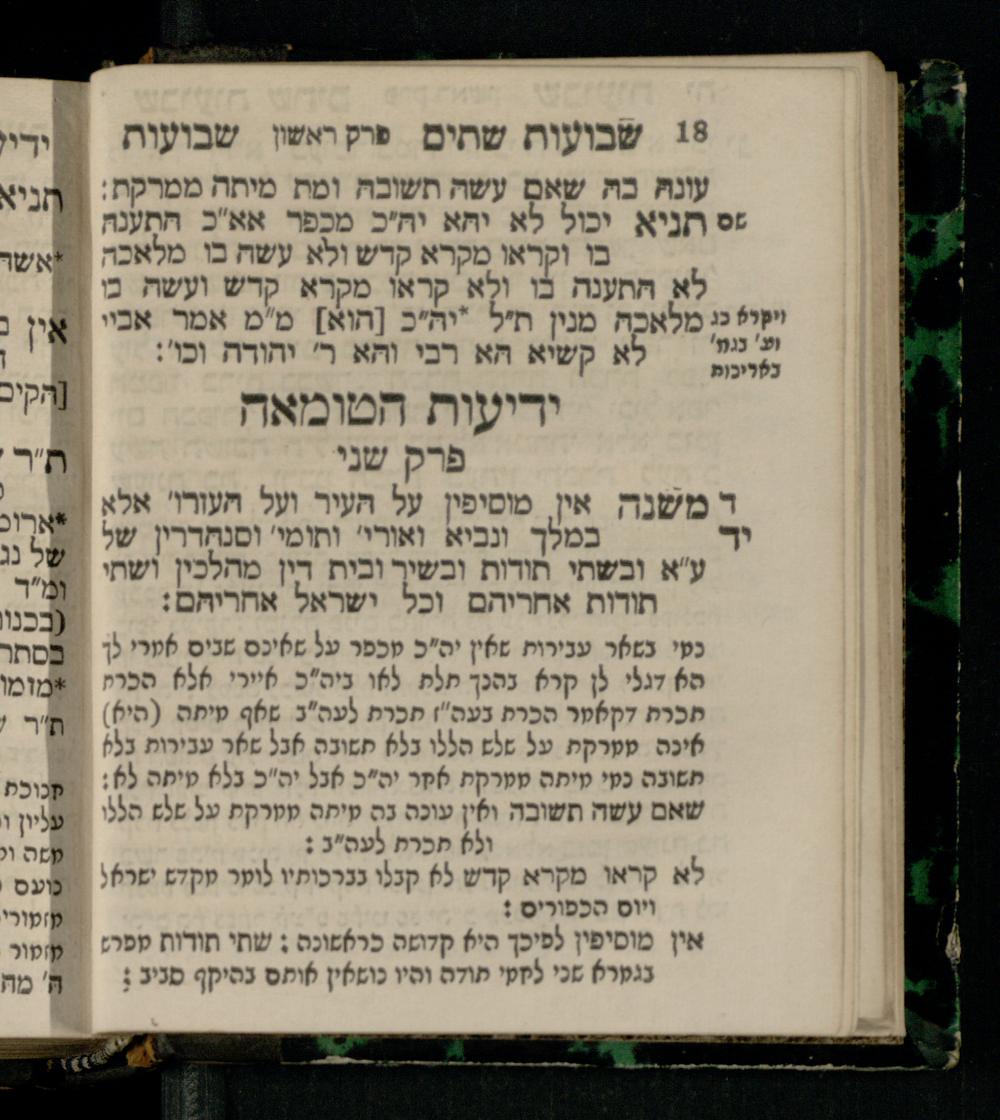 18 שבועות שתים פרק ראשון שבועות
עונה בה שאם עשה תשובה ומת מיתה ממרקת:
שם תניא יכול לא יהא יה"כ מכפר אא"כ התענה
בו וקראו מקרא קדש ולא עשה בו מלאכה
לא התענה בו ולא קראו מקרא קדש ועשה בו
ויקרא כג מלאכה מנין ת"ל *יה"כ [הוא] מ"מ אמר אביי
וע' בגמ' לא קשיא הא רבי והא ר' יהודה וכו':
באריכות
ידיעות הטומאה
פרק שני
ד משנה אין מוסיפין על העיר ועל העזרו' אלא
יד במלך ונביא ואורי' ותומי' וסנהדרין של
ע"א ובשתי תודות ובשיר ובית דין מהלכין ושתי
תודות אחריהם וכל ישראל אחריהם:
נמי בשאר עבירות שאין יה"כ מכפר על שאינם שבים אמרי לך
הא דגלי לן קרא בהנך תלת לאו ביה"כ איירי אלא הכרת
תכרת דקאמר הכרת בעה"ז תכרת לעה"ב שאף מיתה (היא)
אינה ממרקת על שלש הללו בלא תשובה אבל שאר עבירות בלא
תשובה נמי מיתה ממרקת אחר יה"כ אבל יה"כ בלא מיתה לא:
שאם עשה תשובה ואין עונה בה מיתה ממרקת על שלש הללו
ולא תכרת לעה"ב:
לא קראו מקרא קדש לא קבלו בברכותיו לומר מקדש ישראל
ויום הכפורים:
אין מוסיפין לפיכך היא קדושה כראשונה: שתי תודות מפרש
בגמרא שני לחמי תודה והיו נושאין אותם בהיקף סביב:
ידיע
תניא
*אשה
אין
[הקים
ת"ר
*ארוכ
של נג
ומ"ד
(בכנו
בסתר
*מזמו
ת"ר
חנוכת
עליון
משה
כועס
מזמורי
מזמור
ה' מה